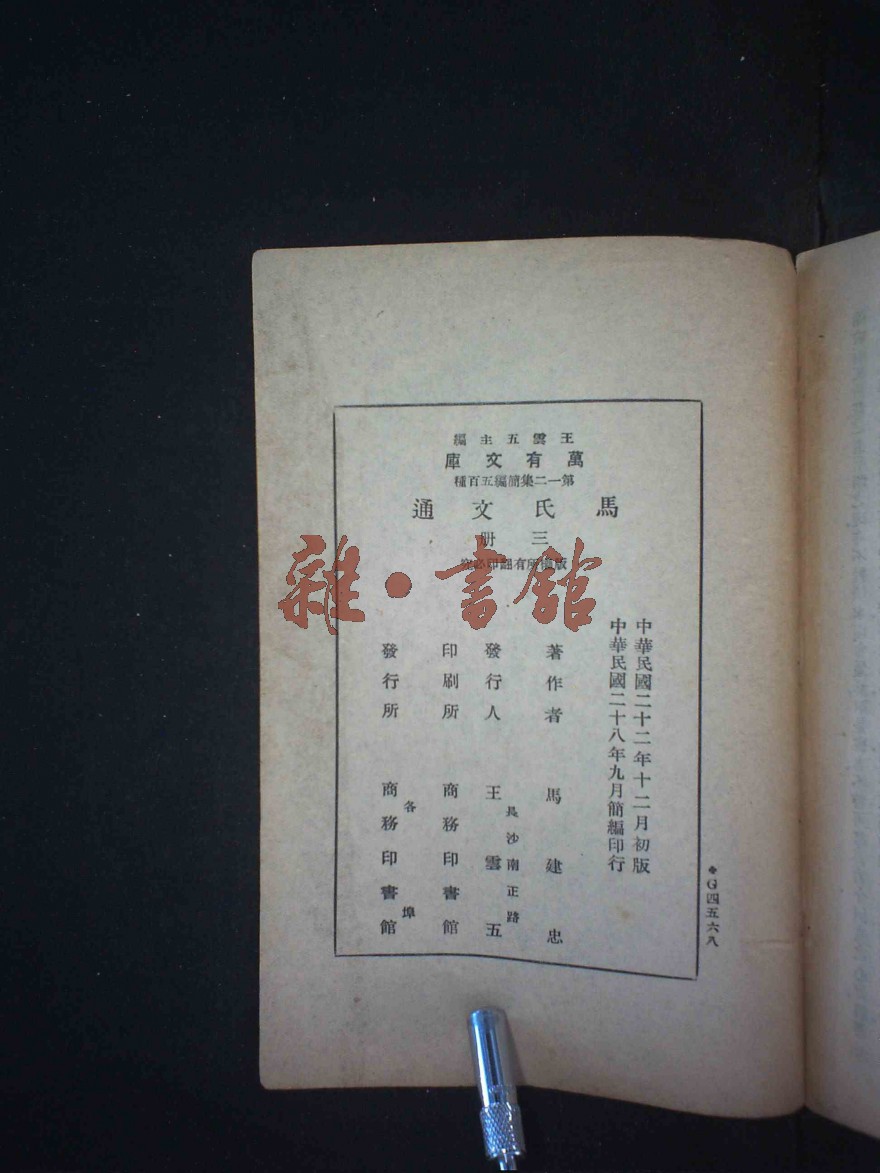 王雲五主編
萬有文庫
第一二集簡編五百種
馬氏文通
三册
版權所有翻印必究
雜·書館
中華民國二十二年十二月初版
中華民國二十八年九月簡編印行
著作者 馬建忠
發行人 王雲五
長沙南正路
印刷所 商務印書館
發行所 商務印書館
各埠
◆G四五六八